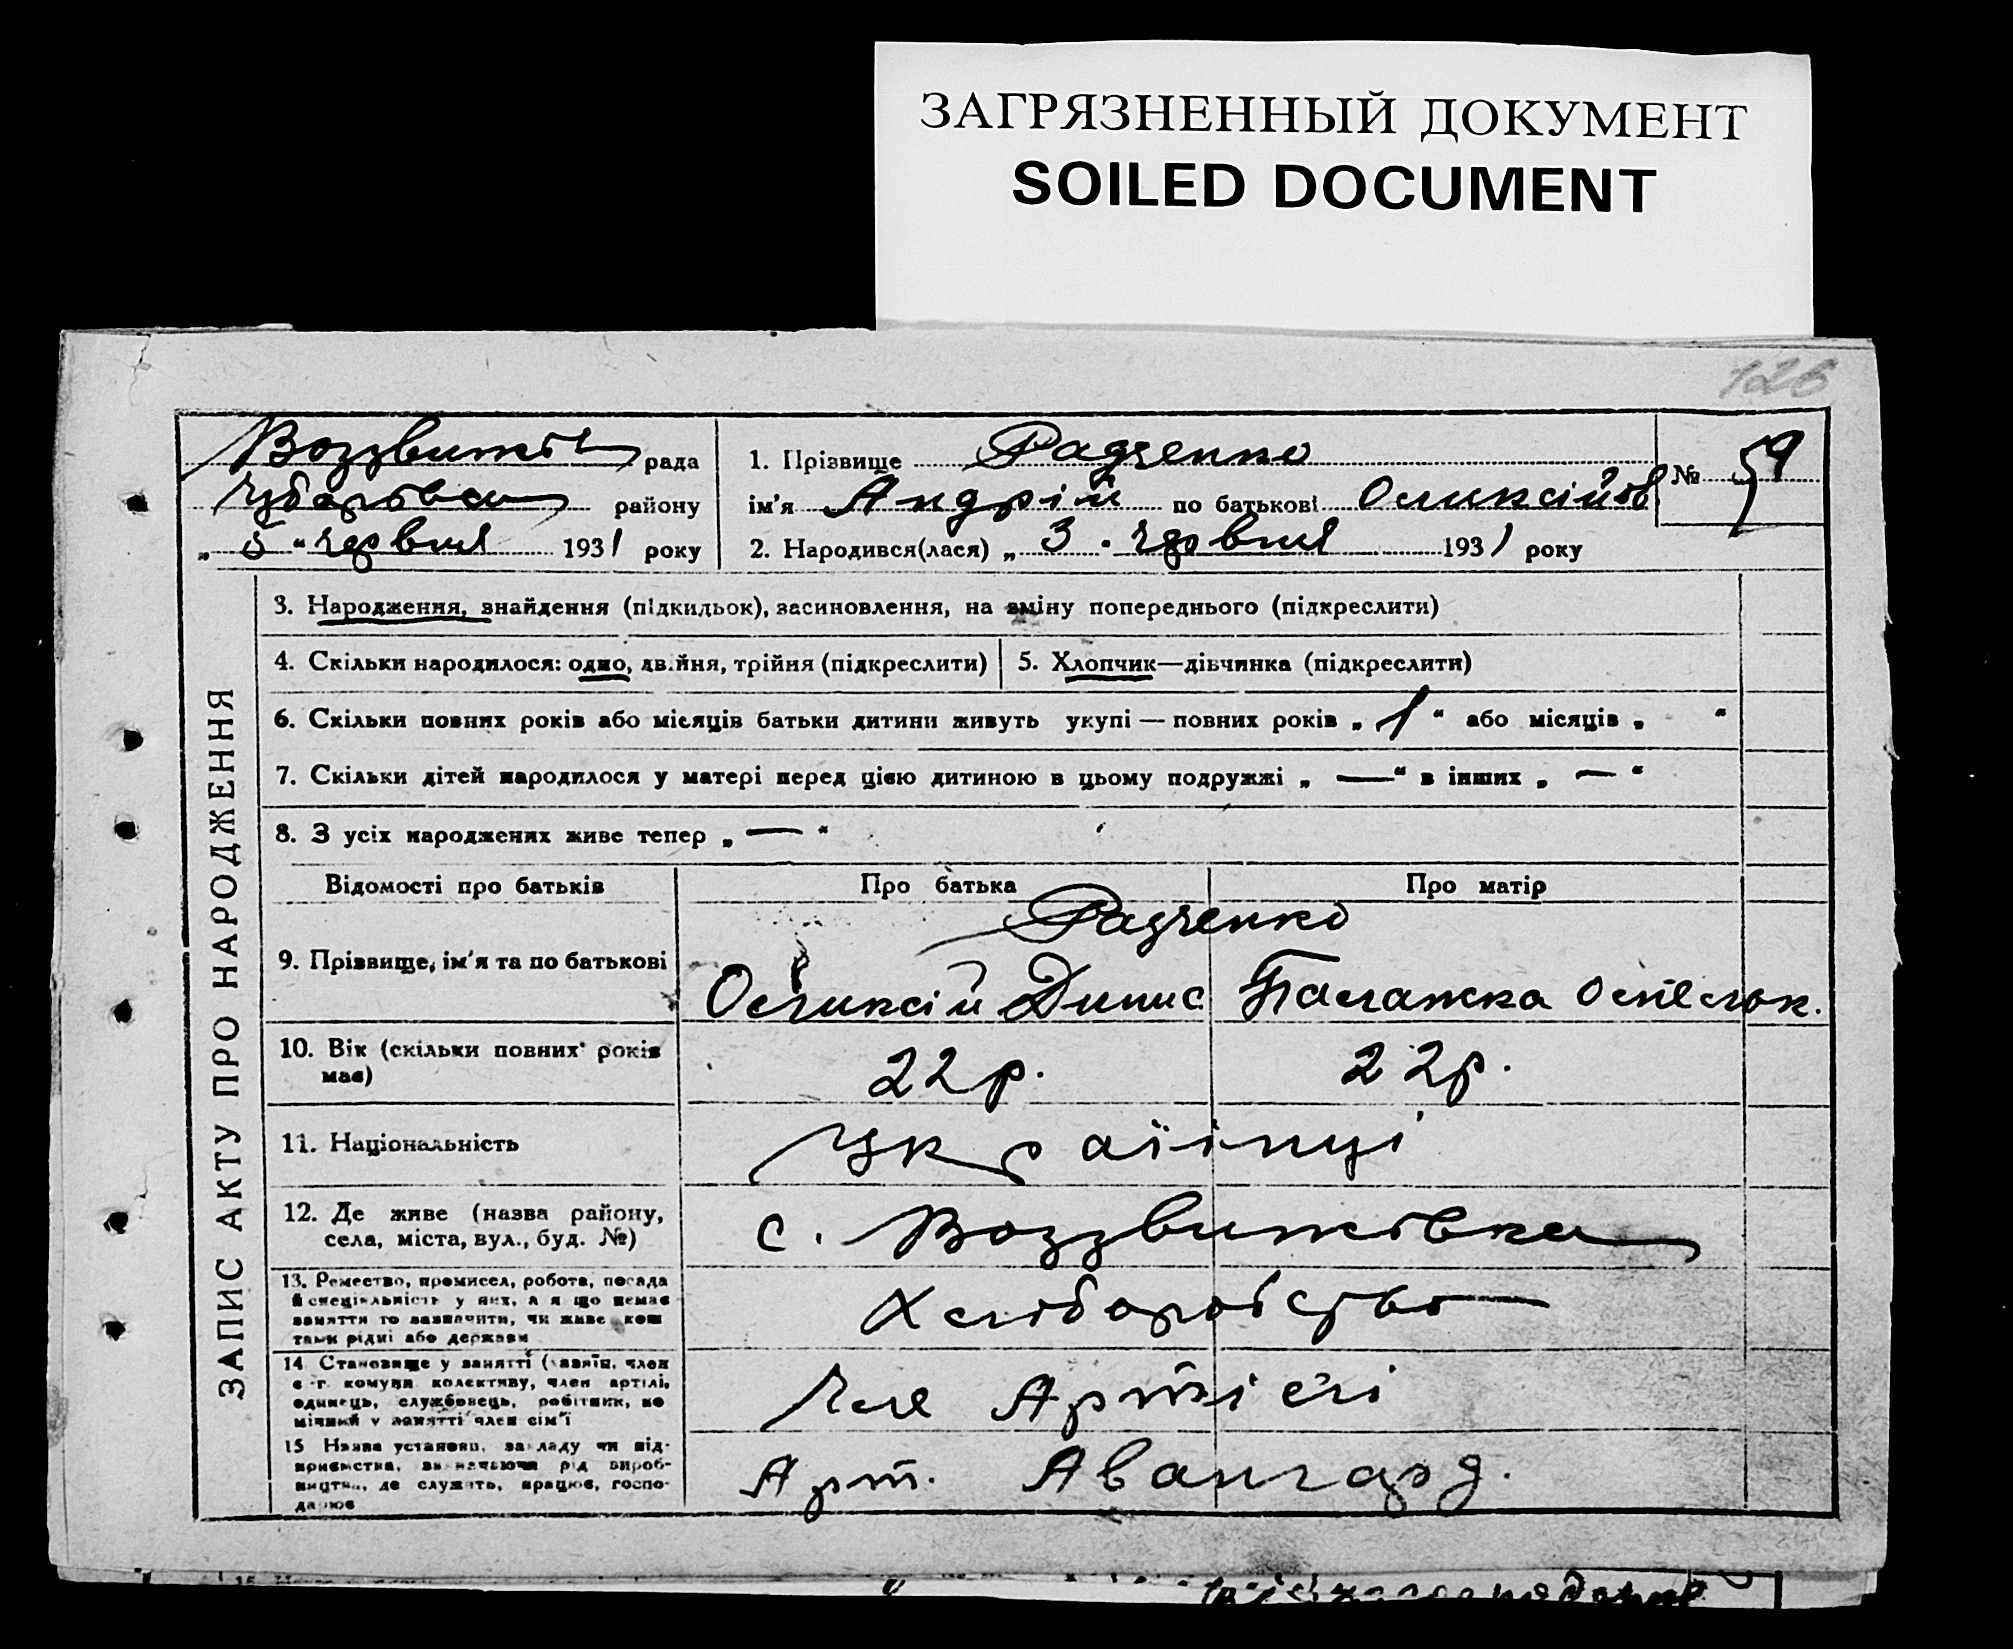 ЗАГРЯЗНЕННЫЙ ДОКУМЕНТ
SOILED DOCUMENT
126
Воззвижів рада
Чубарівськ району
„ 5 “ червня 1931 року
1. Прізвище Радченко
№ 59
ім'я Андрій по батькові Оликсійов
2. Народився(лася) „ 3 . червня 1931 року
ЗАПИС АКТУ ПРО НАРОДЖЕННЯ
3. Народження, знайдення (підкидьок), засиновлення, на зміну попереднього (підкреслити)
4. Скільки народилося: одно, двійня, трійня (підкреслити)
5. Хлопчик—дівчинка (підкреслити)
6. Скільки повних років або місяців батьки дитини живуть укупі — повних років „ 1 “ або місяців „ “
7. Скільки дітей народилося у матері перед цією дитиною в цьому подружжі „ — “ в інших „ — “
8. З усіх народжених живе тепер „ — “
Відомості про батьків
Про батька
Про матір
9. Прізвище, ім'я та по батькові
Радченко
Оликсій Динис
Палажка Остельок.
10. Вік (скільки повних років
має)
22 р.
22 р.
11. Національність
Українці
12. Де живе (назва району,
села, міста, вул., буд. №)
с. Воззвижівка
13. Ремество, промисел, робота, посада
й спеціяльність у них, а я що немає
заняття то зазначити, чи живе кош
тами рідні або держави
Хліборобство
14 Становище у занятті (хазяїн, член
с -г. комуни колективу, член артілі,
одинець, службовець, робітник, по
мічний у занятті член сім'ї
Чле Артілі
15 Назва установи, закладу чи під-
приємства, визначаючи рід вироб-
ництва, де служить, працює, госпо-
дарює
Арт. Авангард.